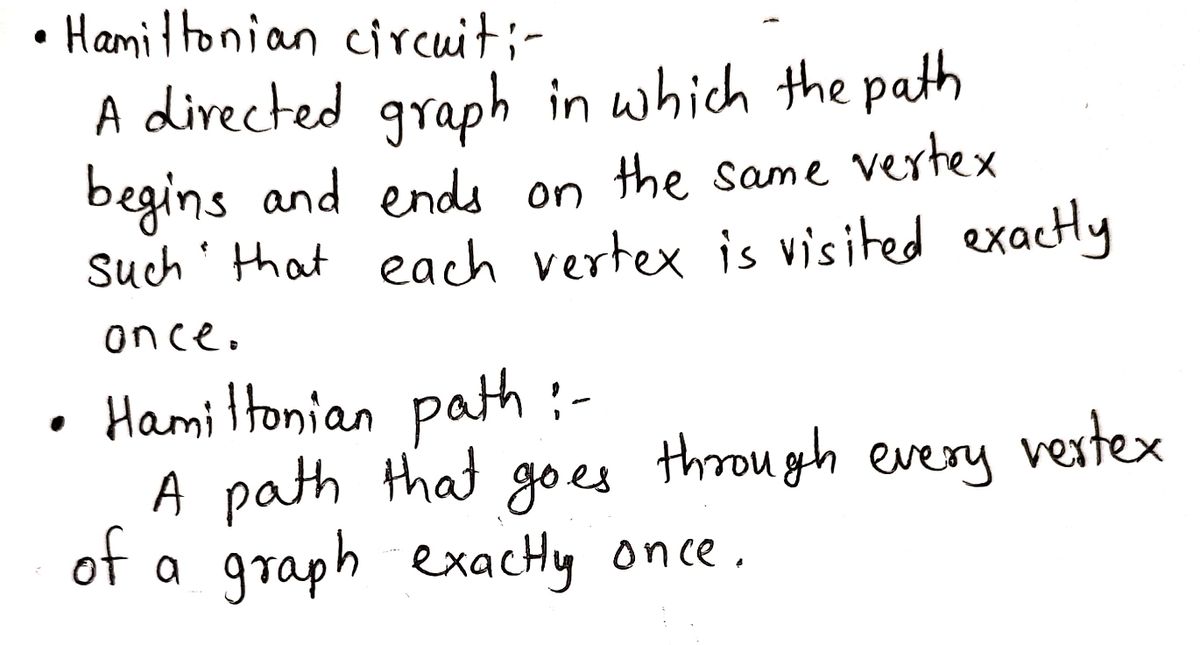 • Hamiltonian circuit :-
A directed graph in which the path
begins and ends on the same vertex
such that each vertex is visited exactly
once.
• Hamiltonian path :-
A path that goes through every vertex
of a graph exactly once.